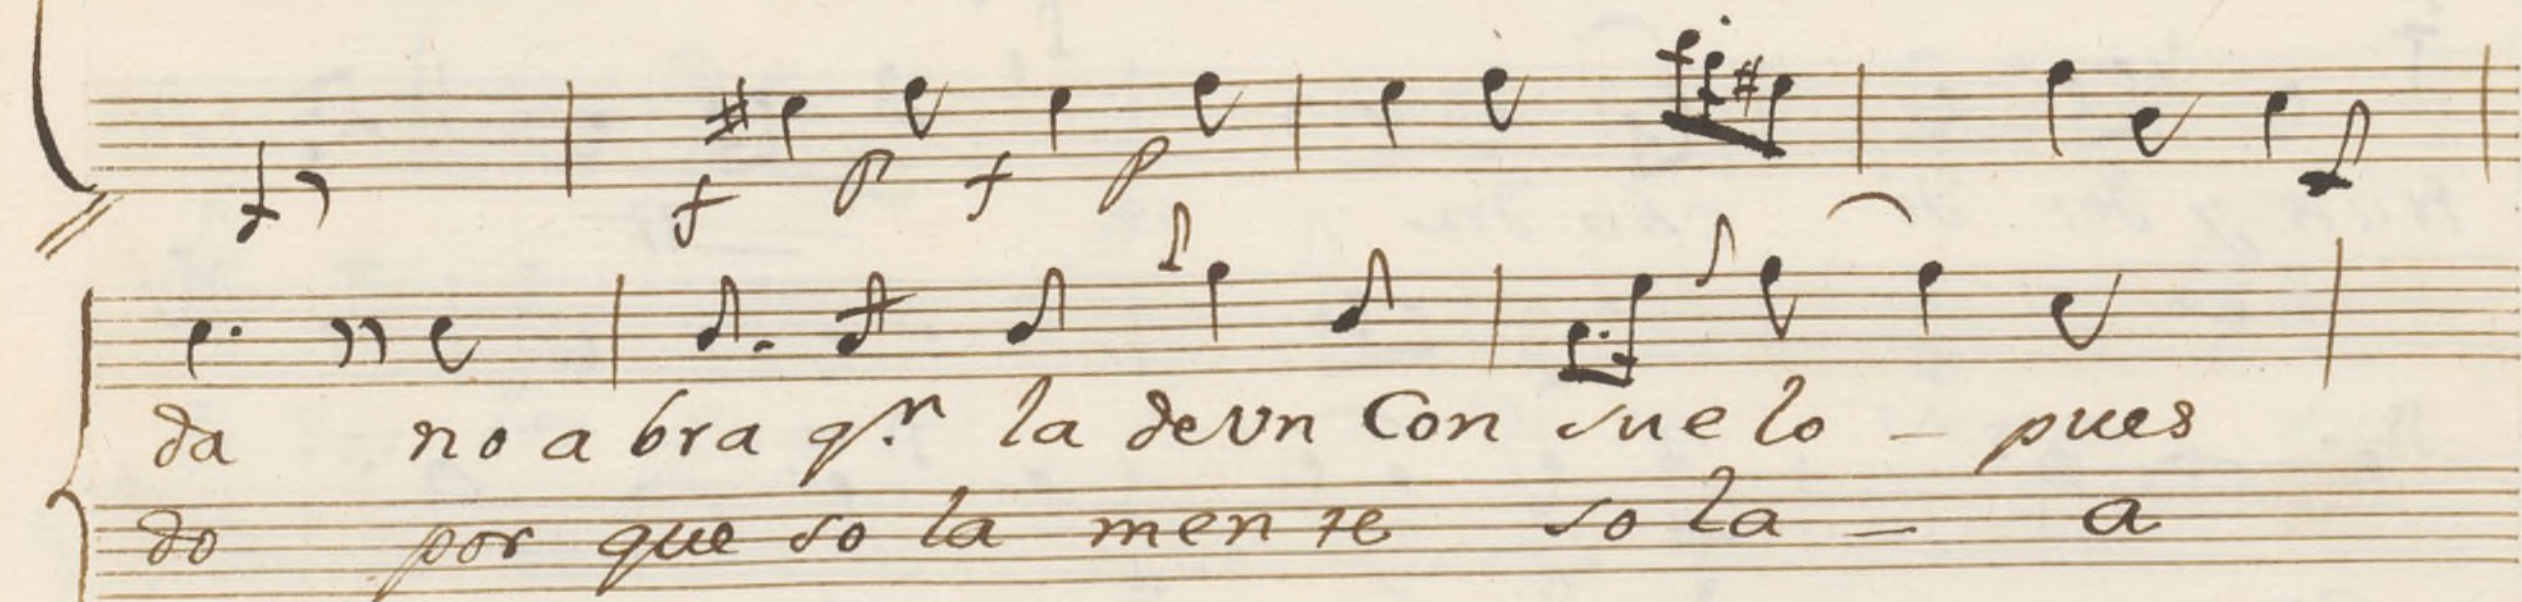 f p f p
da no a bra q.n la de Vn Con sue lo - pues
do por que so la men te so la - a